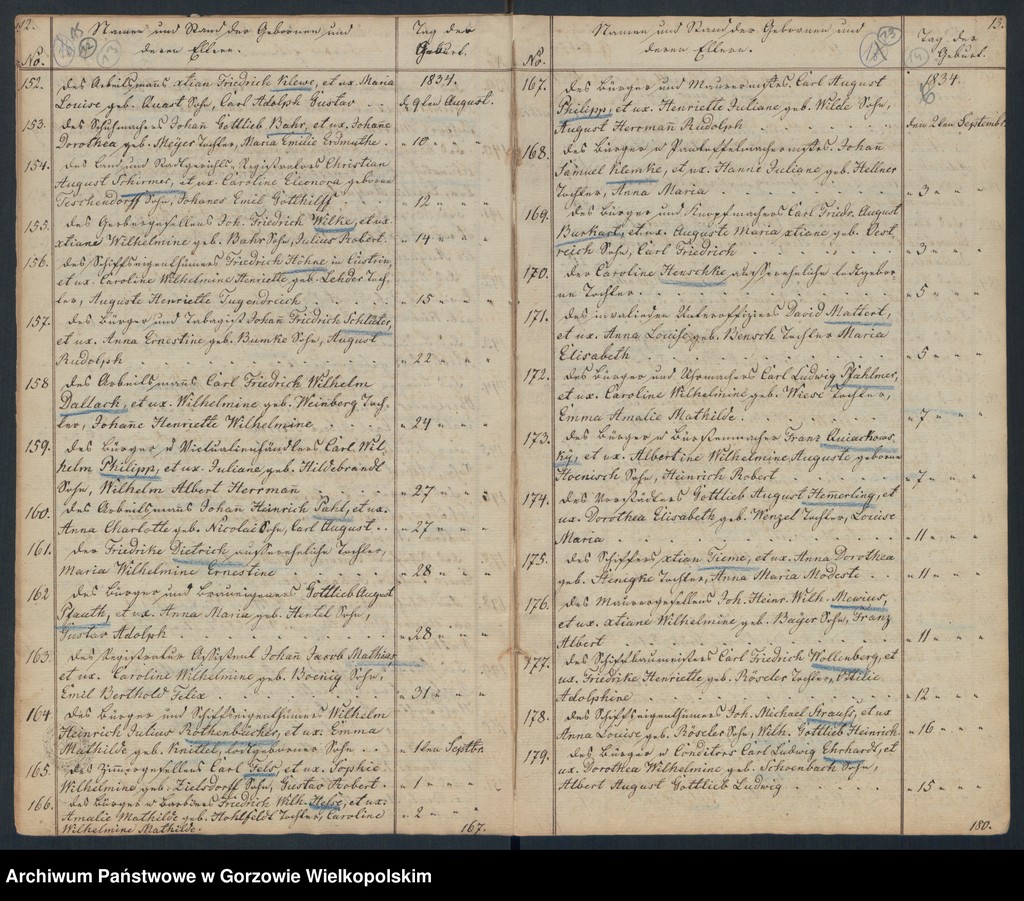 12.
Namen und Stand der Geborenen und
deren Eltern.
Tag der
Geburt.
No.
1834.
152. des Arbeitsmanns xtian Friedrich Klewe, et ux. Maria
Louise geb. Kunst Sohn, Carl Adolph Gustav . . d. 9ten August.
153. des Schuhmachers Johan̄ Gottlieb Bahr, et ux. Johan̄e
Dorothea geb. Meÿer Tochter, Maria Emilie Erdmuthe. " 10 " "
154. des Land und Stadtgerichts-Registrators Christian
August Schirmer, et ux. Caroline Eleonora geborne
Teschendorff Sohn, Johan̄es Emil Gotthilff . . " 12 " "
155. des Gerbergesellens Joh. Friedrich Wilke, et ux.
xtiane Wilhelmine geb. Bahr Sohn, Julius Robert. " 14 " "
156. des Schiffseigenthümers Friedrich Höhne in Cüstrin,
et ux. Caroline Wilhelmine Henriette geb. Lehder Toch-
ter, Auguste Henriette Tugendreich . . " 15 " "
157. des Bürger und Tabagist Johan̄ Friedrich Schlüter,
et ux. Anna Ernestine geb. Bumke Sohn, August
Rudolph . . . " 22 " "
158 des Arbeitsmanns Carl Friedrich Wilhelm
Dallack, et ux. Wilhelmine geb. Weinberg Toch-
ter, Johan̄e Henriette Wilhelmine . . " 24 " "
159. des Bürger u Victualienhändlers Carl Wil-
helm Philipp, et ux. Juliane geb. Hildebrandt
Sohn, Wilhelm Albert Herrman̄ . . " 27 " "
160. des Arbeitsmanns Johan̄ Heinrich Pahl, et ux.
Anna Charlotte geb. Nicolai Sohn, Carl August . . " 27 " "
161. der Friedrike Dietrich aussereheliche Tochter,
Maria Wilhelmine Ernestine . . " 28 " "
162 des Bürger und Braueigeners Gottlieb August
Pfauth, et ux. Anna Maria geb. Hentel Sohn,
Gustav Adolph . . . " 28 " "
163. des Registratur Assistent Johan̄ Jacob Mathias,
et ux. Caroline Wilhelmine geb. Boenig Sohn,
Emil Berthold Felix . . " 31 " "
164. des Bürger und Schiffseigenthümers Wilhelm
Heinrich Julius Rothenbücher, et ux. Emma
Mathilde geb. Knittel, todtgeborner Sohn . . " 1ten Septbr.
165. des Zim̄ergesellens Carl Fels, et ux. Sophie
Wilhelmine geb. Zielsdorff Sohn, Gustav Robert . " 1 " "
166. des Bürger u Barbiers Friedrich Wilh. Helse, et ux.
Amalie Mathilde geb. Hohlfeldt Tochter, Caroline " 2 " "
Wilhelmine Mathilde. 167.
13.
Namen und Stand der Geborenen und
deren Eltern.
Tag der
Geburt.
No.
1834
167. des Bürger und Maurermstrs. Carl August
Philipp, et ux. Henriette Juliane geb. Wilde Sohn,
August Herrman̄ Rudolph . . den 2ten Septembr.
168. des Bürger u Pantoffelmachermstrs. Johan̄
Samuel Klemke, et ux. Hanne Juliane geb. Hellner
Tochter, Anna Maria . . " 3 " "
169. des Bürger und Knopfmachers Carl Friedr. August
Burkart, et ux. Auguste Maria xtiane geb. Oest
reich Sohn, Carl Friedrich . . 3 " "
170. der Caroline Henschke aussereheliche todtgebor
ne Tochter . . . " 5 " "
171. des invaliden Unteroffiziers David Mattert,
et ux. Anna Louise geb. Bensch Tochter Maria
Elisabeth . . . " 5 " "
172. des Bürger und Uhrmachers Carl Ludwig Pfahlmer,
et ux. Caroline Wilhelmine geb. Wiese Tochter,
Emma Amalie Mathilde . . " 7 " "
173. des Bürger u Bürstenmacher Franz Quiackows-
ky, et ux. Albertine Wilhelmine Auguste geborne
Hoenisch Sohn, Heinrich Robert . . " 7 " "
174. des Vorstädters Gottlieb August Hemerling, et
ux. Dorothea Elisabeth geb. Wenzel Tochter, Louise
Maria . . . " 11 " "
175. des Schiffers xtian Tieme, et ux. Anna Dorothea
geb. Henigke Tochter, Anna Maria Modeste . . " 11 " "
176. des Maurergesellens Joh. Heinr. Wilh. Mewius,
et ux. xtiane Wilhelmine geb. Baÿer Sohn, Franz
Albert . . . " 11 " "
177. des Schiffbaumeisters Carl Friedrich Wollenberg, et
ux. Friedrike Henriette geb. Röseler Tochter, Ottilie
Adolphine . . " 12 " "
178. des Schiffseigenthümers Joh. Michael Strauss, et ux
Anna Louise geb. Röseler Sohn, Wilh. Gottlieb Heinrich. " 16 " "
179. des Bürger u Conditors Carl Ludwig Ehrhardt, et
ux. Dorothea Wilhelmine geb. Schoenbach Sohn,
Albert August Gottlieb Ludwig . . " 15 " "
180.
Archiwum Państwowe w Gorzowie Wielkopolskim